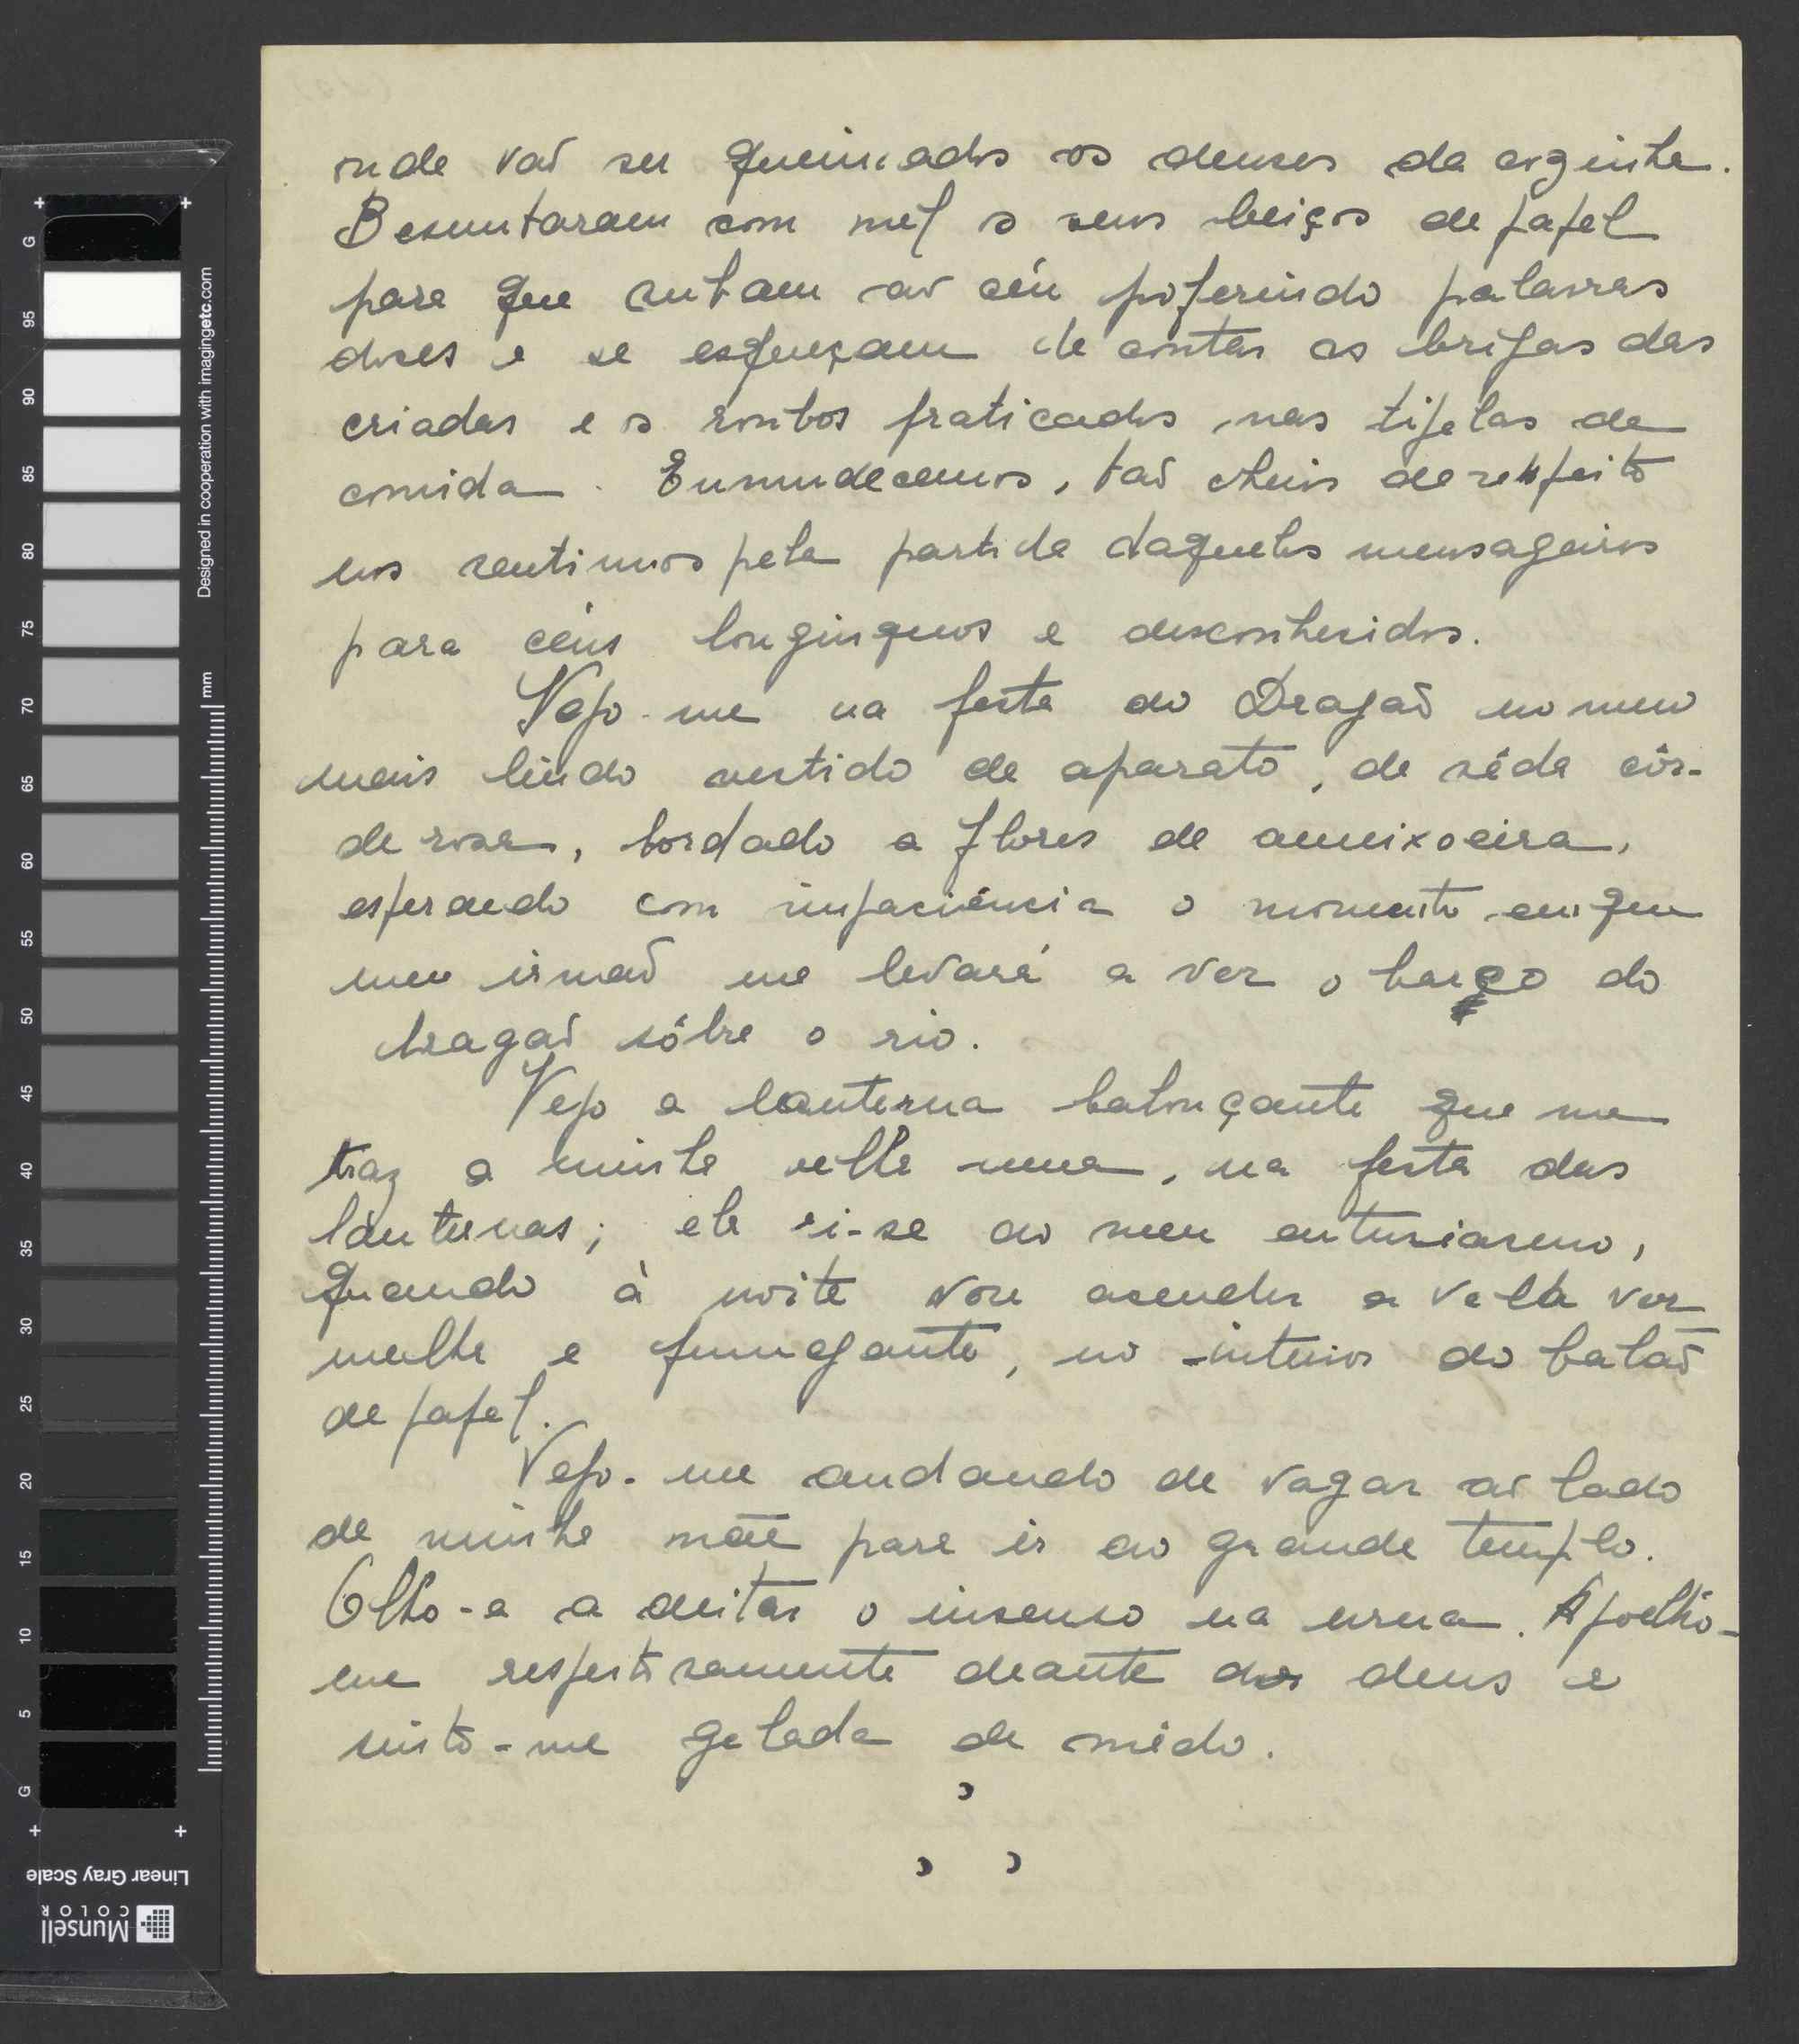 onde vaõ ser queimados os deuses da cozinha.
Besuntaram com mel os seus beiços de papel
para que subam ao céu proferindo palavras
doces e se esqueçam de contar as brigas das
criadas e os roubos praticados nas tijelas de
comida. Emmudecemos, taõ cheios de respeito
nos sentimos pela partida daqueles mensageiros
para céus longinquos e desconhecidos.
Vejo-me na festa do Dragaõ no meu
mais lindo vestido de aparato, de sêda côr-
de rosa, bordado a flores de ameixoeira,
esperando com impaciência o momento em que
meu irmaõ me levará a ver o barco do
dragaõ sôbre o rio.
Vejo a lanterna baloiçante que me
traz a minha velha ama, na festa das
lanternas; ela ri-se do meu entusiasmo,
quando à noite vou acender a vela ver-
melha e fumegante, no interior do balaõ
de papel.
Vejo-me andando de vagar ao lado
de minha mãe para ir ao grande templo.
Olho-a a deitar o incenso na urna. Ajoelho-
me respeitosamente deante do deus e
sinto-me gelada de mêdo.
95
90
85
80
75
70
65
60
55
50
45
40
35
30
25
20
15
10
5
G
G
mm
Designed in cooperation with imagingetc.com
Linear Gray Scale
Munsell
COLOR